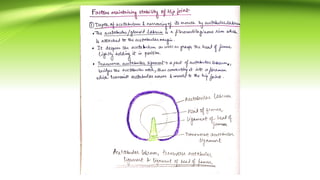 Factors maintaining stability of hip joint
① Depth of acetabulum & narrowing of its mouth by acetabular labrum
• The acetabular/glenoid labrum is a fibrocartilaginous rim which
is attached to the acetabular margin.
• It deepens the acetabulum as well as grasps the head of femur
tightly holding it in position.
• Transverse acetabular ligament is a part of acetabular labrum,
bridges the acetabular notch, thus converting it into a foramen
which transmit acetabular vessels & nerves to the hip joint.
Acetabular labrum
Head of femur
Ligament of head of
femur
Transverse acetabular
ligament
Acetabular labrum, transverse acetabular
ligament & ligament of head of femur